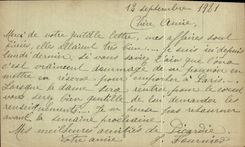 12 septembre 1921
Chère Amie,
Merci de votre gentille lettre, mes affaires sont
finies, elles allaient très bien. Je suis ici depuis
lundi dernier, si vous saviez bien que
c'est vraiment dommage de ne pouvoir en
mettre en réserve pour emporter à Paris.
Lorsque la dame sera rentrée pour le
vous serez bien gentille de lui demander les
renseignements. Je ne pense pas retourner
avant la semaine prochaine.
Mes meilleures amitiés de Picardie
Votre amie L. Fournier